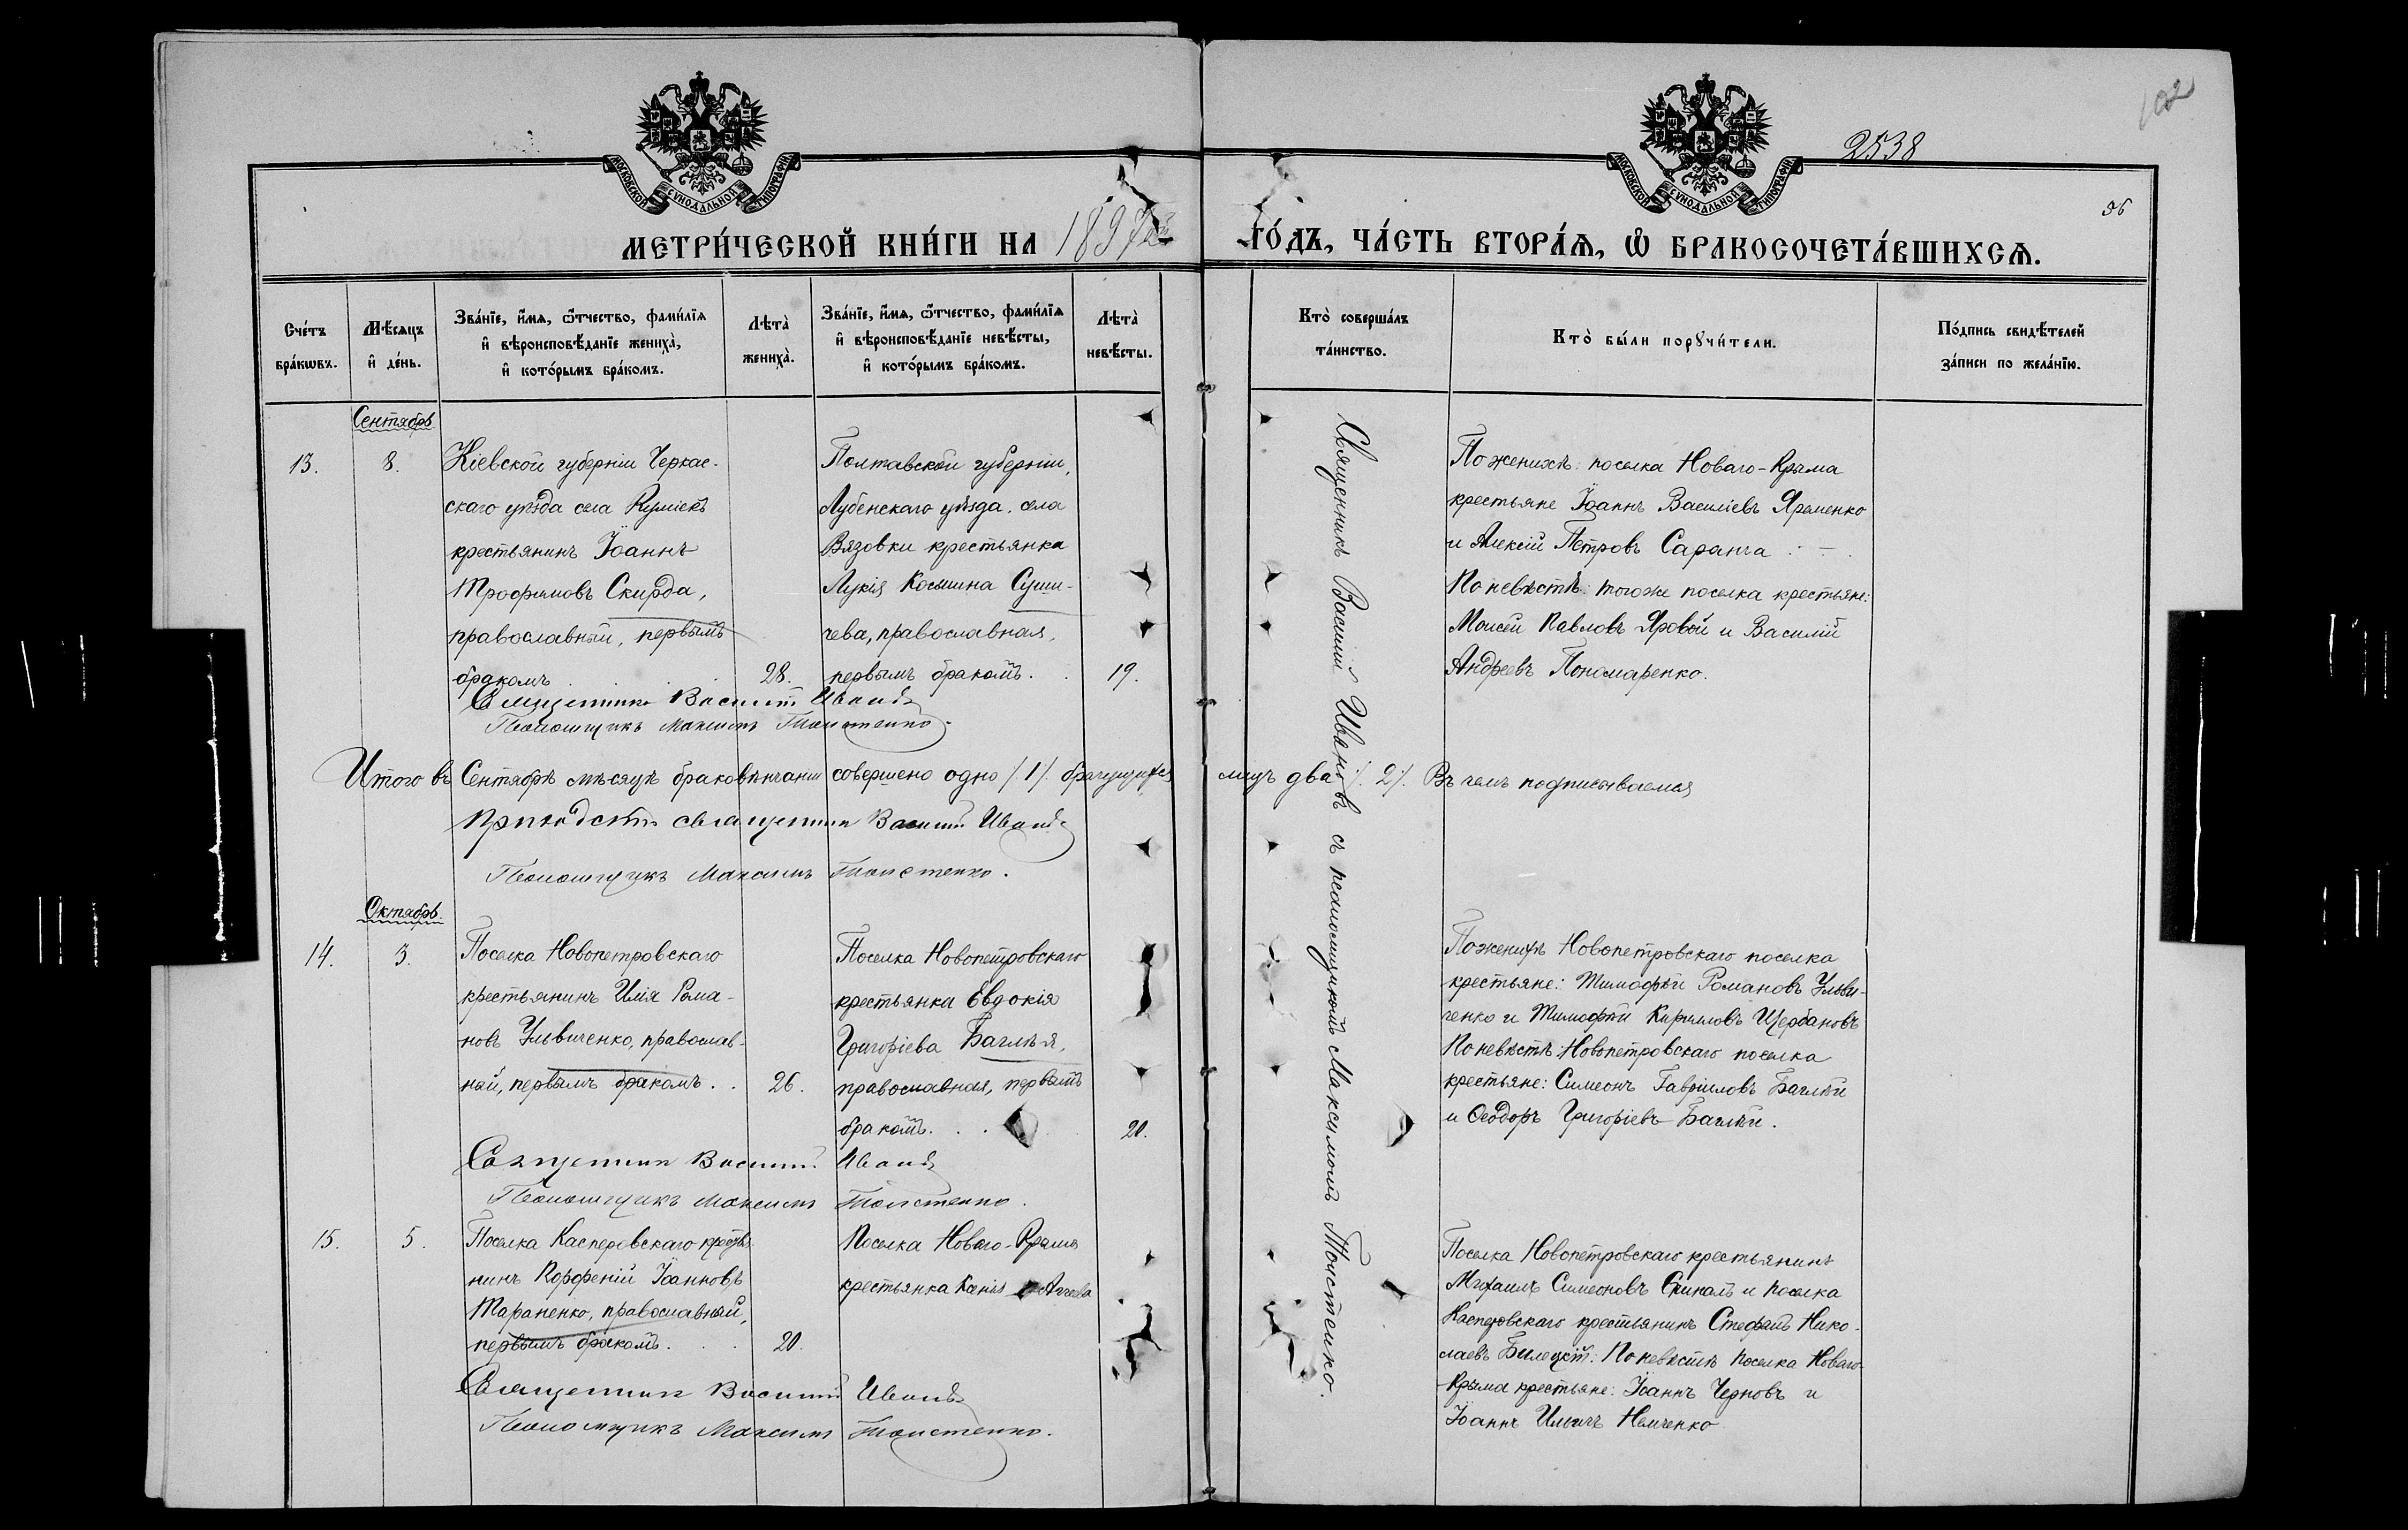 102
2538
56
МОСКОВСКОЙ СУНОДАЛЬНОЙ ТИПОГРАФІИ
МОСКОВСКОЙ СУНОДАЛЬНОЙ ТИПОГРАФІИ
МЕТРИ́ЧЕСКОЙ КНИ́ГИ НА 1897й ГО́ДЪ, ЧА́СТЬ ВТОРА́Ѧ, Ѽ БРАКОСОЧЕТА́ВШИХСѦ.
Сче́тъ бра́кѡвъ.
Мѣ́сѧцъ и҆ де́нь.
Зва́нїе, и҆́мѧ, ѻ҆́тчество, фами́лїѧ и҆ вѣроисповѣ́данїе жениха̀, и҆ кото́рымъ бра́комъ.
Лѣта̀ жениха̀.
Зва́нїе, и҆́мѧ, ѻ҆́тчество, фами́лїѧ и҆ вѣроисповѣ́данїе невѣ́сты, и҆ кото́рымъ бра́комъ.
Лѣта̀ невѣ́сты.
Кто̀ соверша́лъ та́инство.
Кто̀ бы́ли порꙋчи́тели.
По́дпись свидѣ́телей за́писи по жела́нїю.
Сентябрь
13.
8.
Кіевской губерніи Черкас-
скаго уѣзда села Кумѣекъ
крестьянинъ Іоаннъ
Трофимовъ Скирда,
православный, первымъ
бракомъ
28.
Полтавской губерніи,
Лубенскаго уѣзда, села
Вязовки крестьянка
Лукія Косьмина Суши-
чева, православная,
первымъ бракомъ.
19.
По женихѣ: поселка Новаго-Крыма
крестьяне Іоаннъ Василіевъ Яременко
и Алексій Петровъ Саранча
По невѣстѣ: того же поселка крестьяне:
Моисей Павловъ Яровой и Василій
Андреевъ Пономаренко.
Священникъ Василій Ивановъ
Псаломщикъ Максимъ Толстенко
Священникъ Василій Ивановъ съ псаломщикомъ Максимомъ Толстенко.
Итого въ Сентябрѣ мѣсяцѣ браковѣнчаніи совершено одно /1/. брачущихся лицъ два /2/. Въ чемъ подписываемся
Приходскій священникъ Василій Ивановъ
Псаломщикъ Максимъ Толстенко.
Октябрь.
14.
3.
Поселка Новопетровскаго
крестьянинъ Илія Рома-
новъ Ульвиченко, православ-
ный, первымъ бракомъ.
26.
Поселка Новопетровскаго
крестьянка Евдокія
Григоріева Баглѣя,
православная, первымъ
бракомъ.
20.
По женихѣ Новопетровскаго поселка
крестьяне: Тимофѣй Романовъ Ульви-
ченко и Тимофѣй Кирилловъ Щербановъ
По невѣстѣ: Новопетровскаго поселка
крестьяне: Симеонъ Гавріиловъ Баглѣй
и Ѳеодоръ Григоріевъ Баглѣй.
Священникъ Василій Ивановъ
Псаломщикъ Максимъ Толстенко.
15.
5.
Поселка Касперовскаго крестья-
нинъ Порфеній Іоанновъ
Тараненко, православный,
первымъ бракомъ.
20.
Поселка Новаго-Крыма
крестьянка
Поселка Новопетровскаго крестьянинъ
Михаилъ Симеоновъ и поселка
Касперовскаго крестьянинъ Стефанъ Нико-
лаевъ Билецкій: По невѣстѣ поселка Новаго-
Крыма крестьяне: Іоаннъ Черновъ и
Іоаннъ Ильичъ Немченко
Священникъ Василій Ивановъ
Псаломщикъ Максимъ Толстенко.